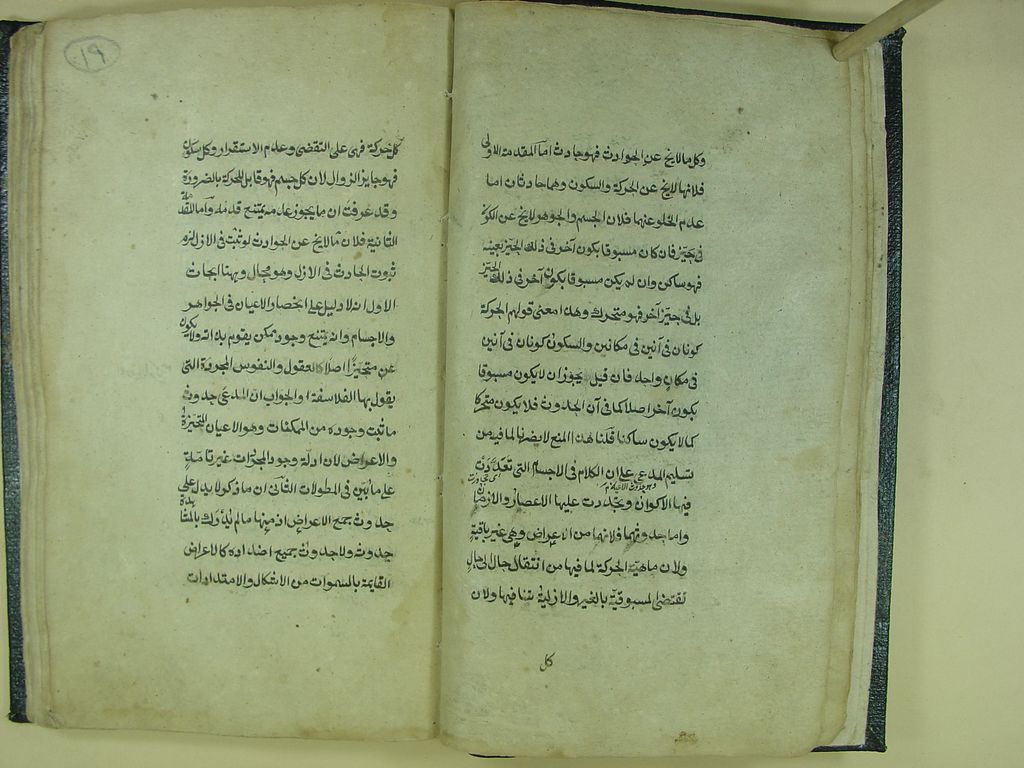 وكل ما لايخ عن الحوادث فهو حادث اما المقدمة الاولى
فلانها لايخ عن الحركة والسكون وهما حادثان اما
عدم الخلو عنهما فلان الجسم والجوهر لايخ عن الكون
فى حيز فان كان مسبوقا بكون آخر فى ذلك الحيز بعينه
فهو ساكن وان لم يكن مسبوقا بكون آخر فى ذلك الحيز
بل فى حيز آخر فهو متحرك وهذا معنى قولهم الحركة
كونان فى آنين فى مكانين والسكون كونان فى آنين
فى مكان واحد فان قيل يجوز ان لايكون مسبوقا
بكون آخر اصلا كما فى آن الحدوث فلا يكون متحركا
كما لا يكون ساكنا قلنا هذا المنع لايضرنا لما فيه من
تسليم المدعى على ان الكلام فى الاجسام التى تعددت
وهو حدوث الاعيان
فيها الاكوان وتجددت عليها الاعصار والازمان
واما حدوثهما فلانهما من الاعراض وهى غير باقية
ولان ماهية الحركة لما فيها من انتقال حال الى حال
تقتضى المسبوقية بالغير والازلية تنافيها ولان
كل
١٩
كل حركة فهى على التقضى وعدم الاستقرار وكل سكون
فهو جايز الزوال لان كل جسم فهو قابل للحركة بالضرورة
وقد عرفت ان ما يجوز عدمه يمتنع قدمه واما المقدمة
الثانية فلان ما لايخ عن الحوادث لو ثبت فى الازل لزم
ثبوت الحادث فى الازل وهو محال وههنا ابحاث
الاول انه لا دليل على انحصار الاعيان فى الجواهر
والاجسام وانه يمتنع وجود ممكن يقوم بذاته ولا يكون
عن متحيزا اصلا كالعقول والنفوس المجردة التى
يقول بها الفلاسفة والجواب ان المدعى حدوث
ما ثبت وجوده من الممكنات وهو الاعيان المتحيزة
والاعراض لان ادلة وجود المجردات غير تامة
على ما بين فى المطولات الثانى ان ما ذكر لا يدل على
حدوث جميع الاعراض اذ منها ما لم يدرك بالمشاهدة
حدوثه ولا حدوث جميع اضداده كالاعراض
القايمة بالسموات من الاشكال والامتدادات